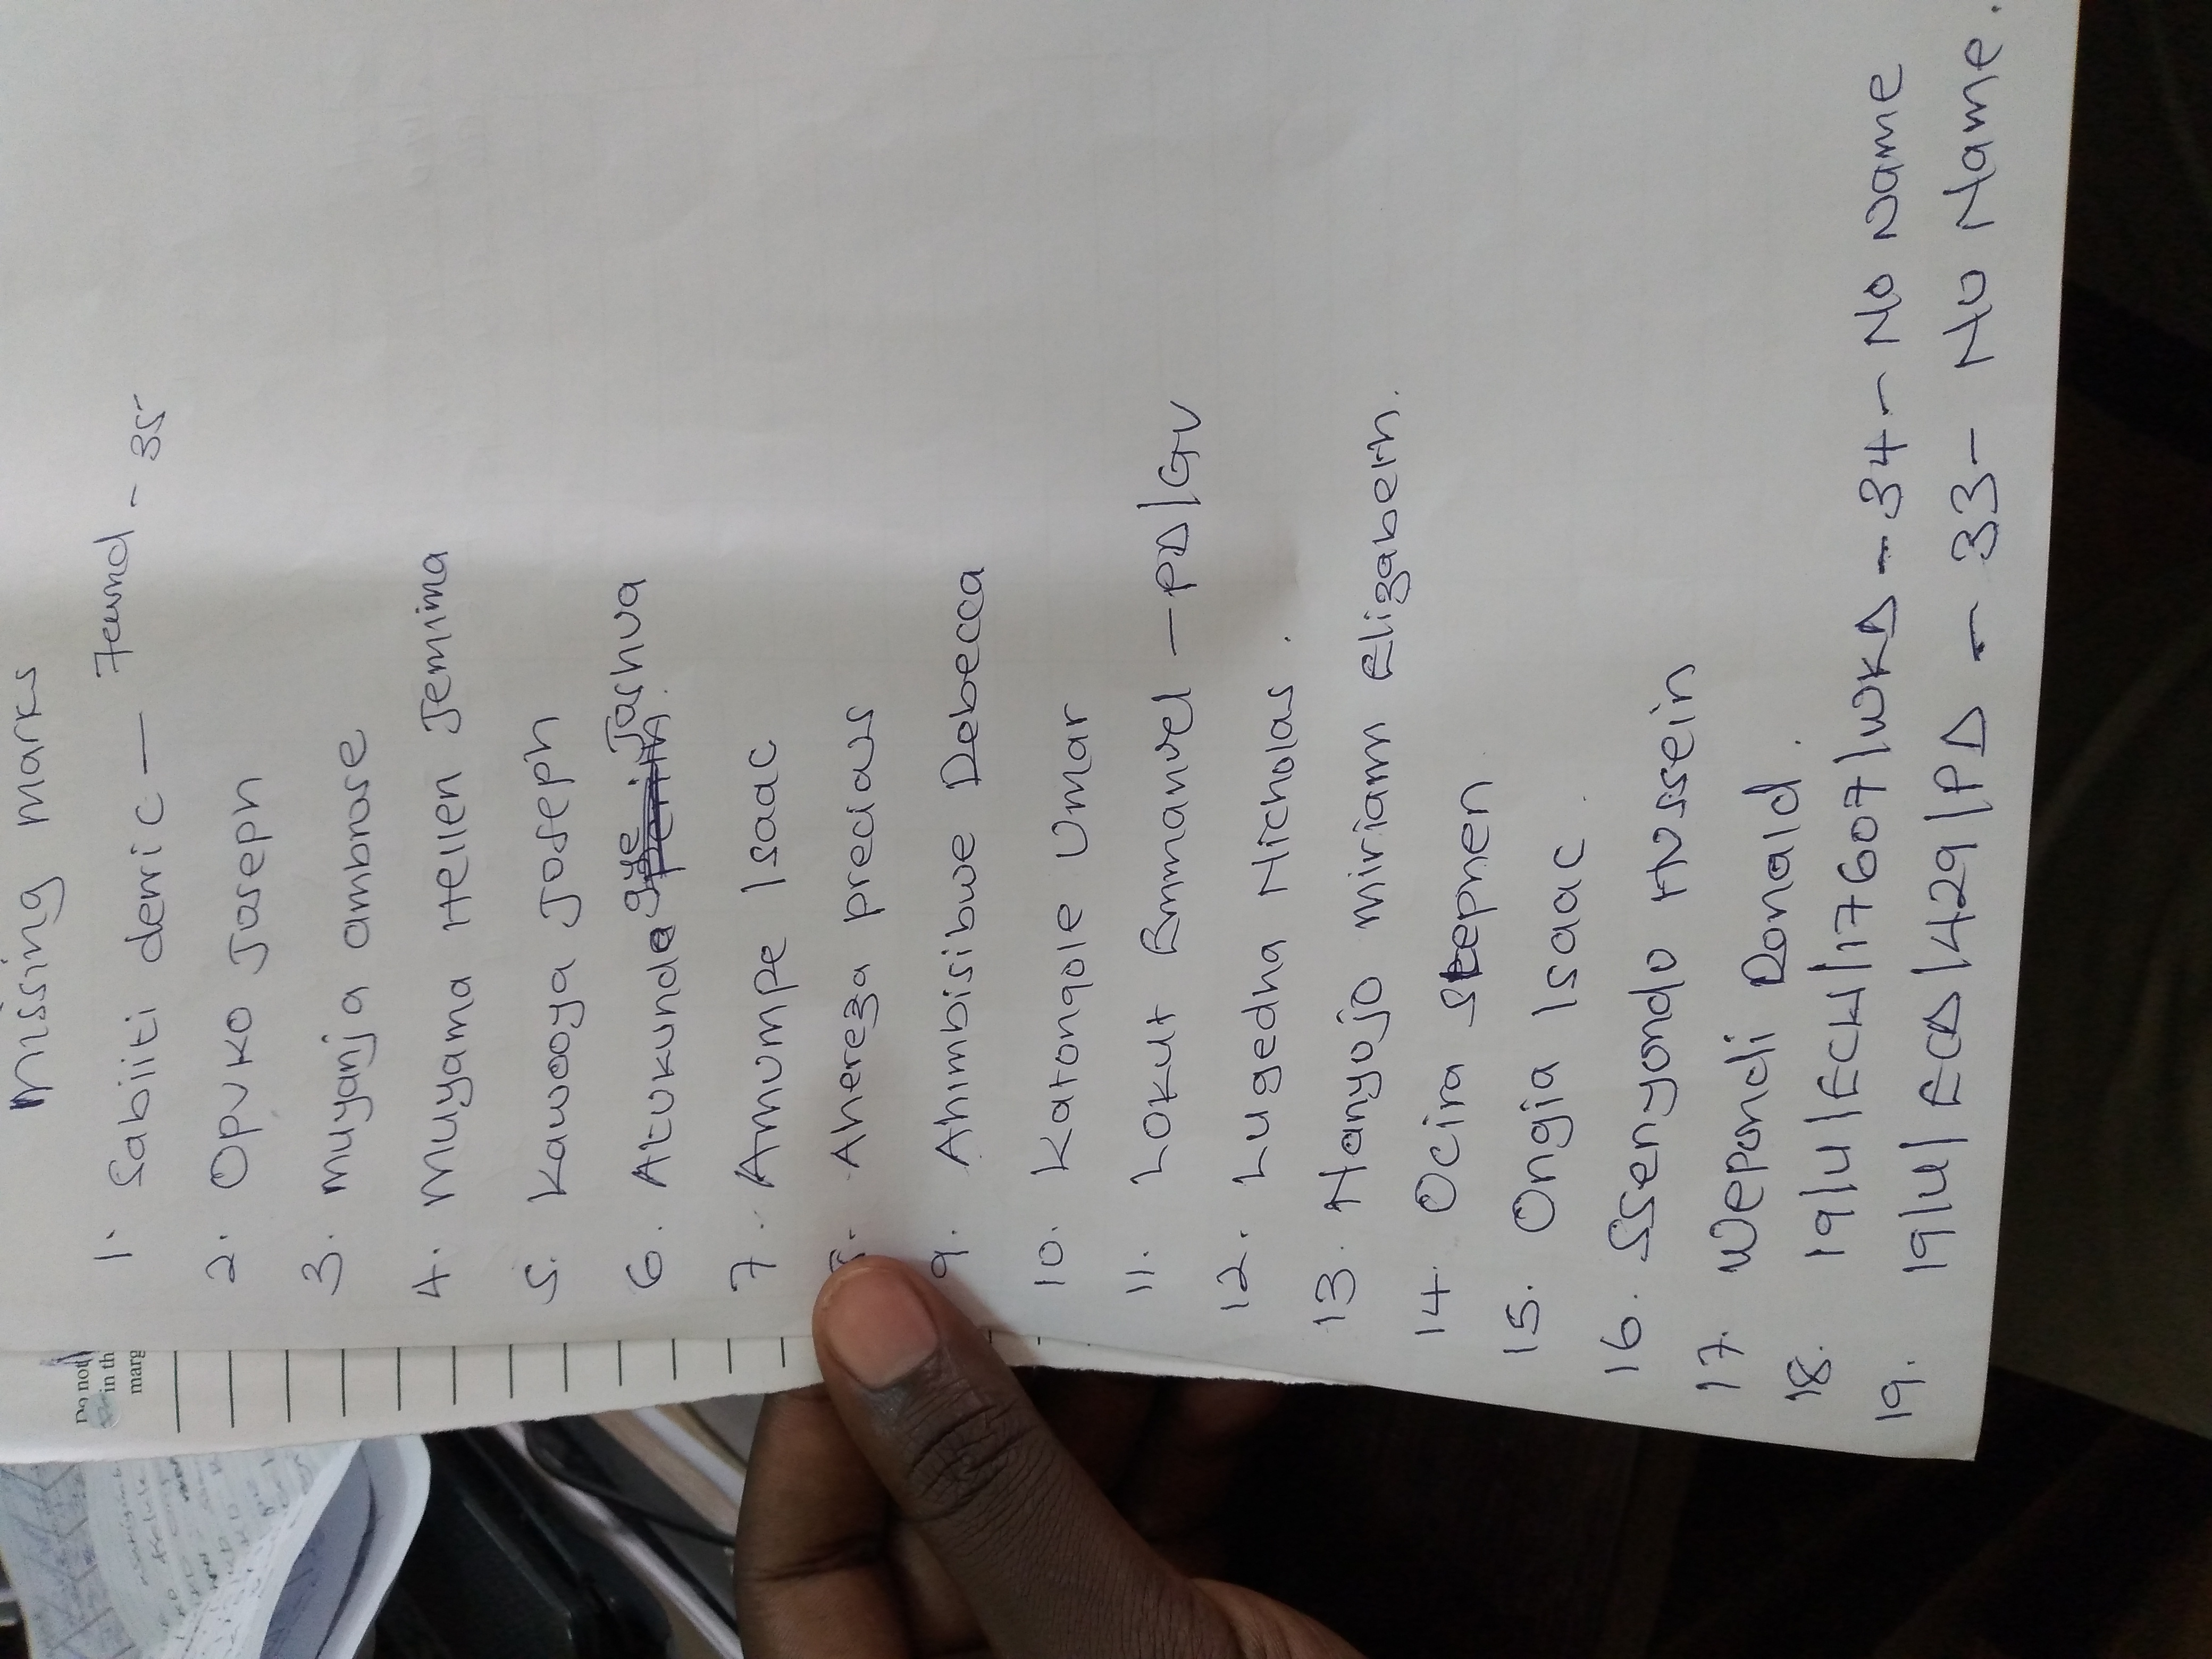 Missing marks
Do not
in th
marg
1. Sabiiti derric — Found - 35
2. Opuko Joseph
3. Muyanja ambrose
4. Muyama Hellen Jemima
5. Kawooya Joseph
6. Atukunda gye . Joshua
7. Amumpe Isaac
8. Ahereza precious
9. Ahimbisibwe Debecca
10. Katongole Umar
11. Lokut Emmanuel — PD/GU
12. Lugedha Nicholas .
13. Nanyojo miriam Elizabeth.
14. Ocira Stephen
15. Ongia Isaac .
16. Ssenyondo Hussein
17. Wepondi Donald .
18. 19/U/ECH/17607/WKD - 34 - No Name
19. 19/U/ECD/429/PD - 33 - No Name.